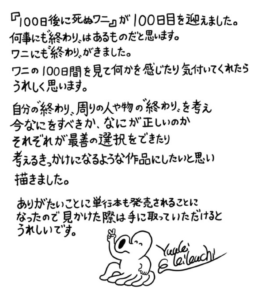 『100日後に死ぬワニ』が100日目を迎えました。
何事にも"終わり"はあるものだと思います。
ワニにも"終わり"がきました。
ワニの100日間を見て何かを感じたり気付いてくれたら
うれしく思います。
自分の"終わり"、周りの人や物の"終わり"を考え
今なにをすべきか、なにが正しいのか
それぞれが最善の選択をできたり
考えるきっかけになるような作品にしたいと思い
描きました。
ありがたいことに単行本も発売されることに
なったので見かけた際は手に取っていただけると
うれしいです。
Yuuki
Kikuchi